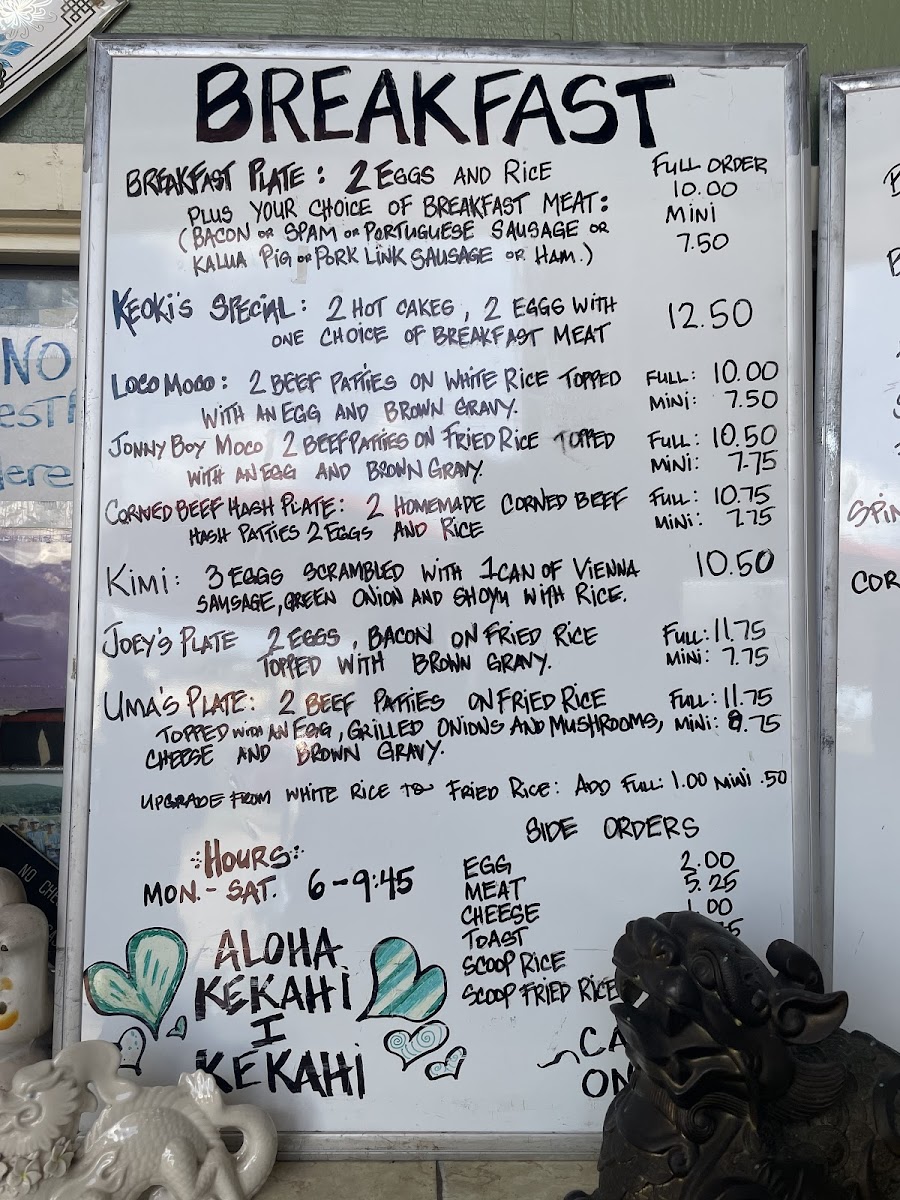 BREAKFAST
BREAKFAST PLATE: 2 EGGS AND RICE FULL ORDER
10.00
PLUS YOUR CHOICE OF BREAKFAST MEAT: MINI
(BACON OR SPAM OR PORTUGUESE SAUSAGE OR 7.50
KALUA PIG OR PORK LINK SAUSAGE OR HAM.)
KEOKI'S SPECIAL: 2 HOT CAKES, 2 EGGS WITH 12.50
ONE CHOICE OF BREAKFAST MEAT
LOCO MOCO: 2 BEEF PATTIES ON WHITE RICE TOPPED FULL: 10.00
WITH AN EGG AND BROWN GRAVY. MINI: 7.50
JONNY BOY MOCO 2 BEEF PATTIES ON FRIED RICE TOPPED FULL: 10.50
WITH AN EGG AND BROWN GRAVY. MINI: 7.75
CORNED BEEF HASH PLATE: 2 HOMEMADE CORNED BEEF FULL: 10.75
HASH PATTIES 2 EGGS AND RICE MINI: 7.75
KIMI: 3 EGGS SCRAMBLED WITH 1 CAN OF VIENNA 10.50
SAUSAGE, GREEN ONION AND SHOYU WITH RICE.
JOEY'S PLATE 2 EGGS, BACON ON FRIED RICE FULL: 11.75
TOPPED WITH BROWN GRAVY. MINI: 7.75
UMA'S PLATE: 2 BEEF PATTIES ON FRIED RICE FULL: 11.75
TOPPED WITH AN EGG, GRILLED ONIONS AND MUSHROOMS, MINI: 8.75
CHEESE AND BROWN GRAVY.
UPGRADE FROM WHITE RICE TO FRIED RICE: ADD FULL: 1.00 MINI .50
SIDE ORDERS
EGG 2.00
MEAT 5.25
CHEESE 1.00
TOAST
SCOOP RICE
SCOOP FRIED RICE
HOURS
MON.-SAT. 6-9:45
ALOHA
KEKAHI
I
KEKAHI
NO